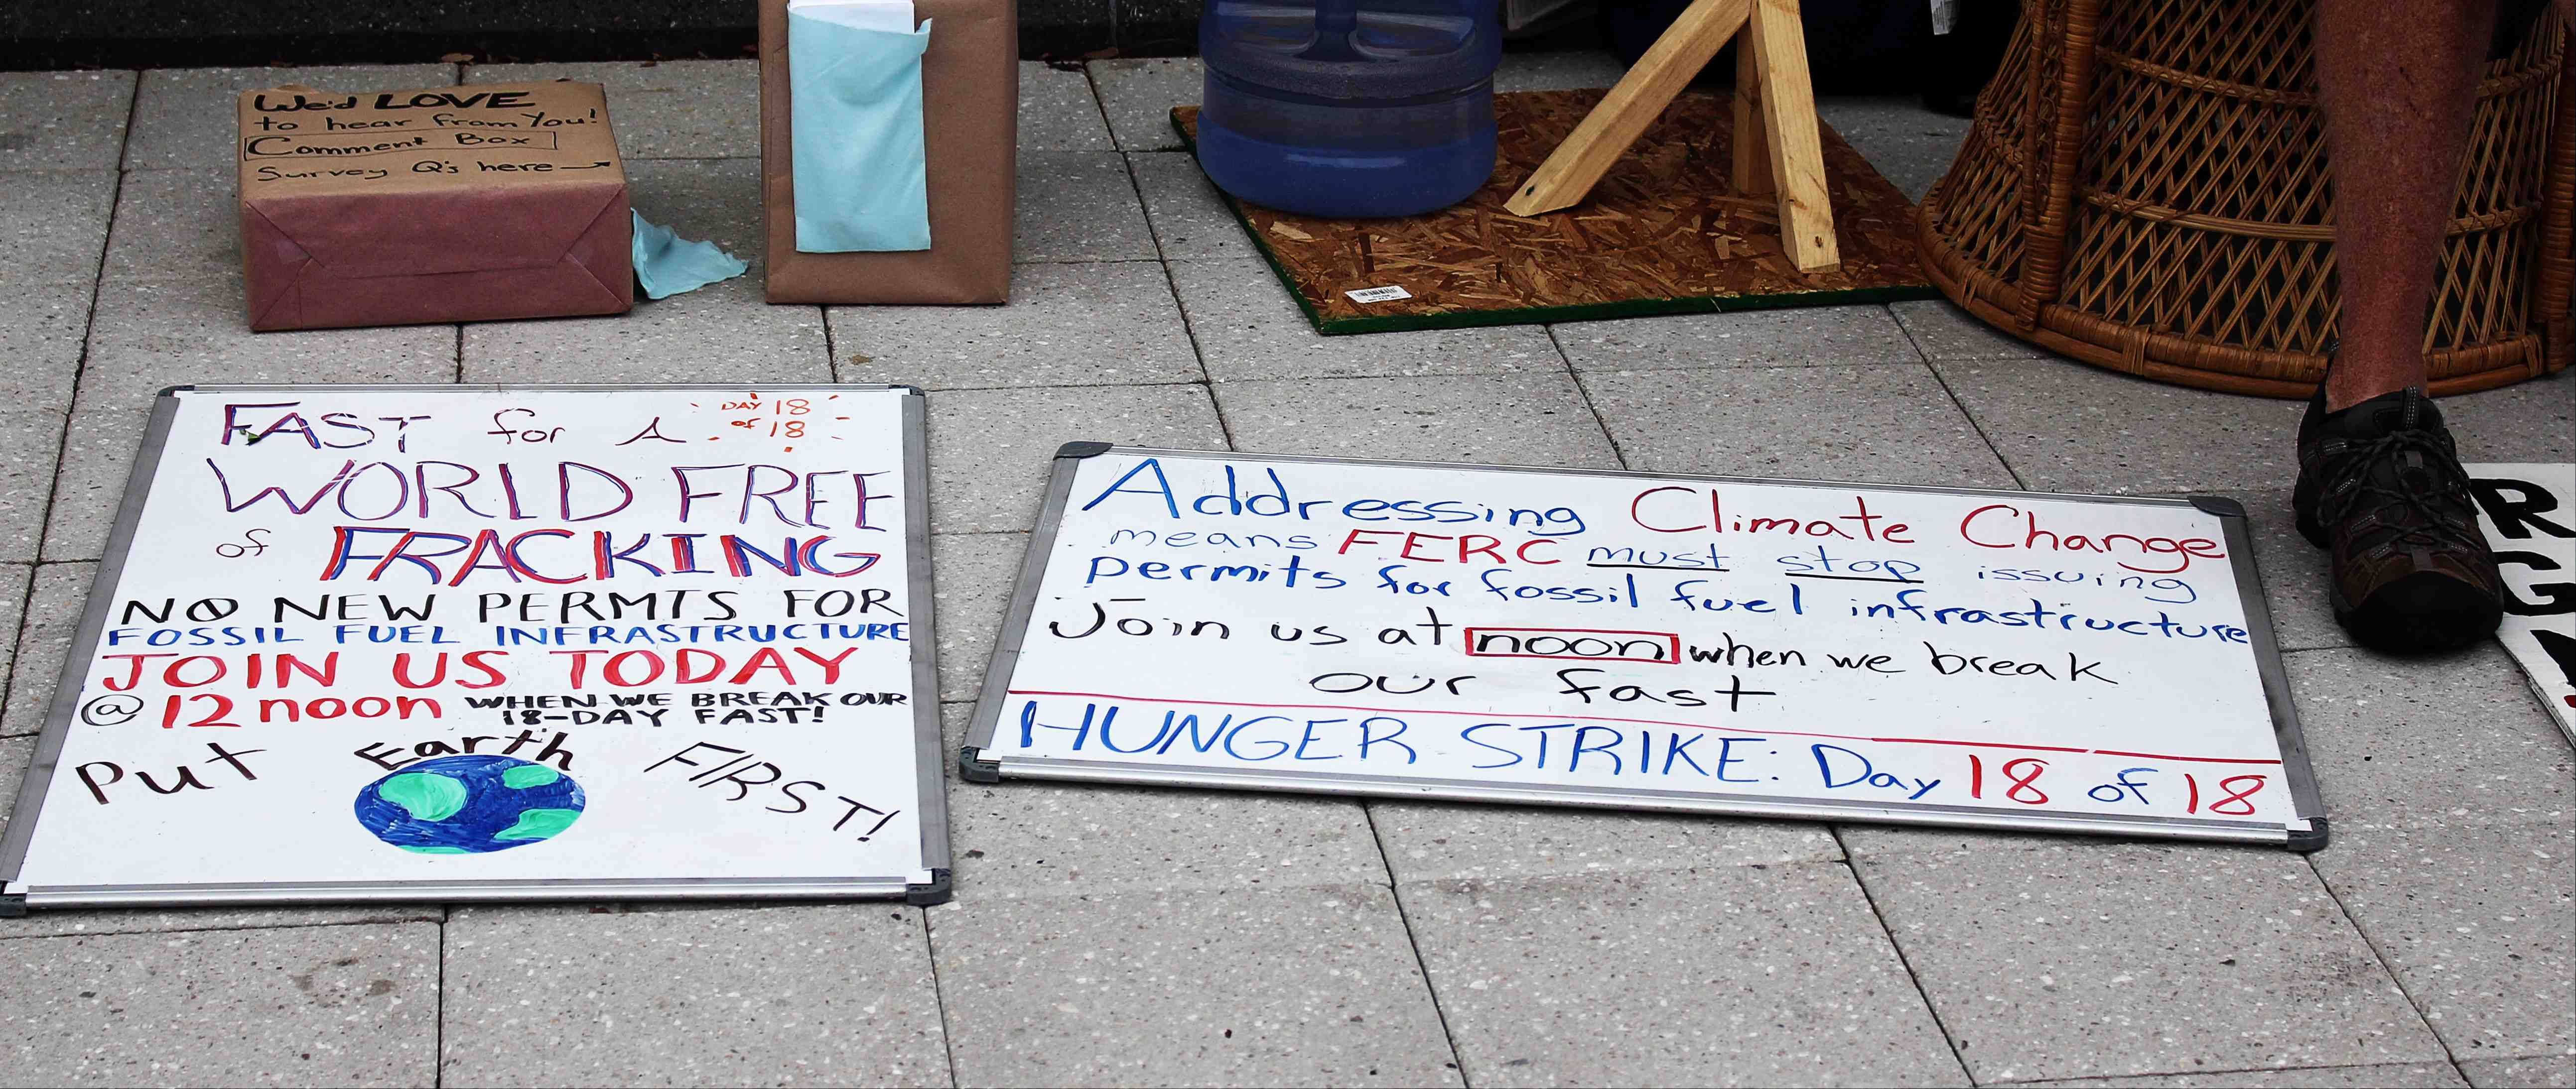 We'd LOVE
to hear from You!
Comment Box
Survey Q's here →
FAST for A
DAY 18
of 18
WORLD FREE
of FRACKING
NO NEW PERMTS FOR
FOSSIL FUEL INFRASTRUCTURE
JOIN US TODAY
@ 12 noon WHEN WE BREAK OUR
18-DAY FAST!
Put Earth FIRST!
Addressing Climate Change
means FERC must stop issuing
permits for fossil fuel infrastructure
Join us at noon when we break
our fast
HUNGER STRIKE: Day 18 of 18
R
G